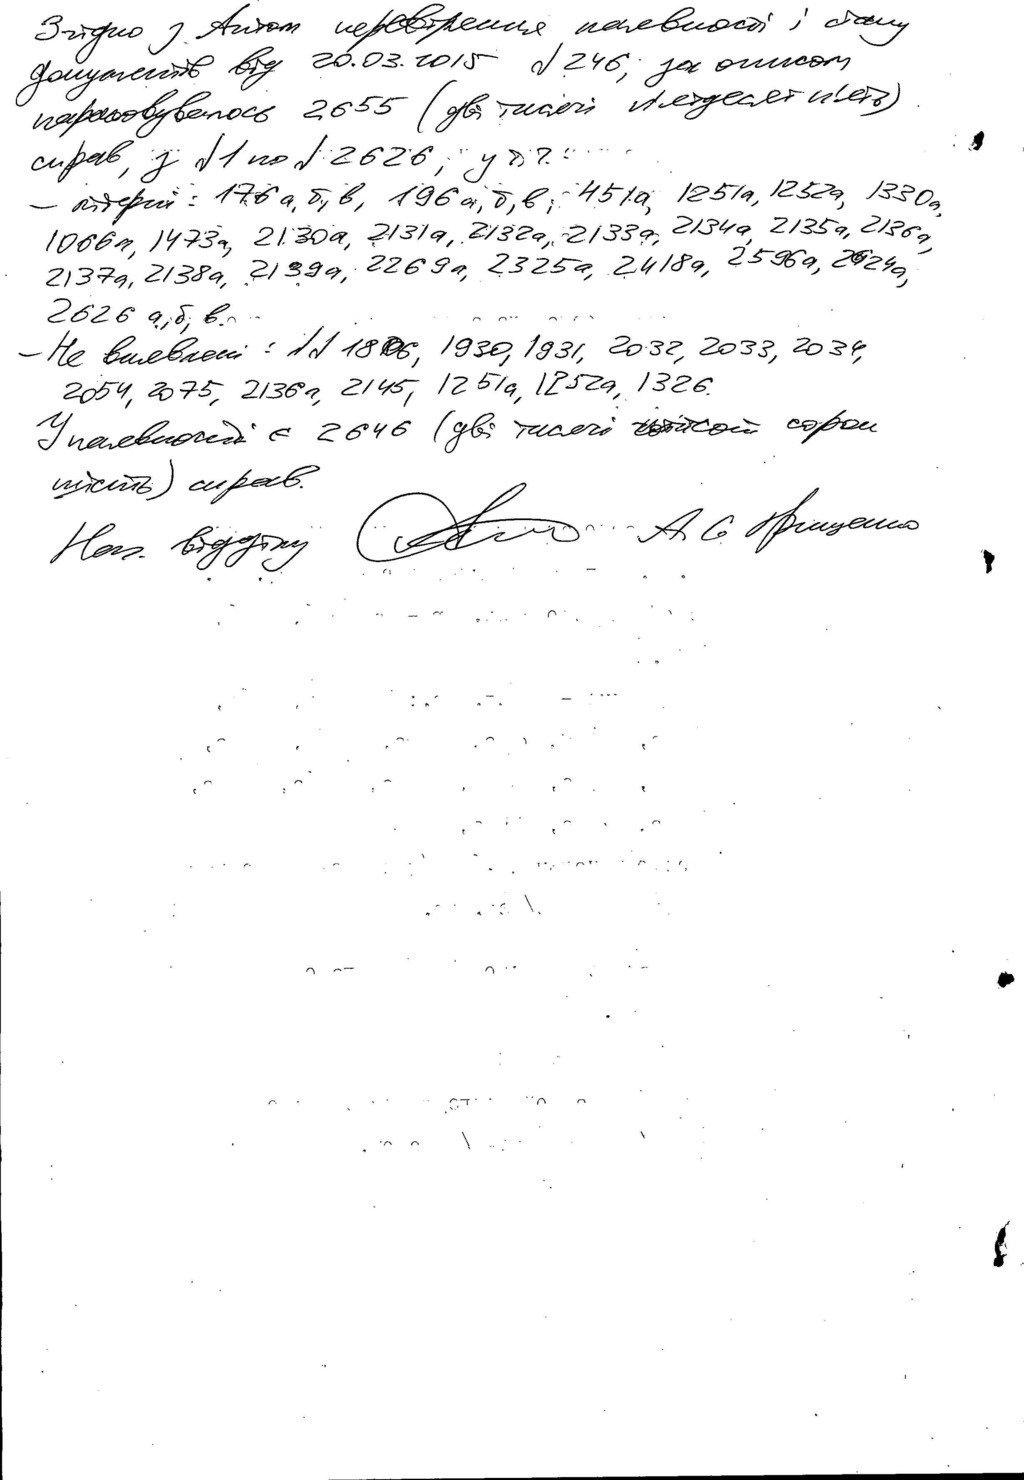 Згідно з Актом перевіряння наявності і стану
документів від 20.03.2015 № 246, за описом
нараховувалось 2655 (дві тисячі п'ятдесят п'ять)
справ, з №1 по № 2626, у т.ч.
– літерні: 176 а, б, в, 196 а, б, в, 451а, 1251а, 1252а, 1330а,
1066а, 1473а, 2130а, 2131а, 2132а, 2133а, 2134а, 2135а, 2136а,
2137а, 2138а, 2139а, 2269а, 2325а, 2418а, 2596а, 2624а,
2626 а, б, в.
– Не виявлені: №№ 1930, 1931, 2032, 2033, 2034,
2054, 2075, 2136а, 2145, 1251а, 1252а, 1326.
У наявності є 2646 (дві тисячі шістсот сорок
шість) справ.
Нач. відділу А С Грищенко